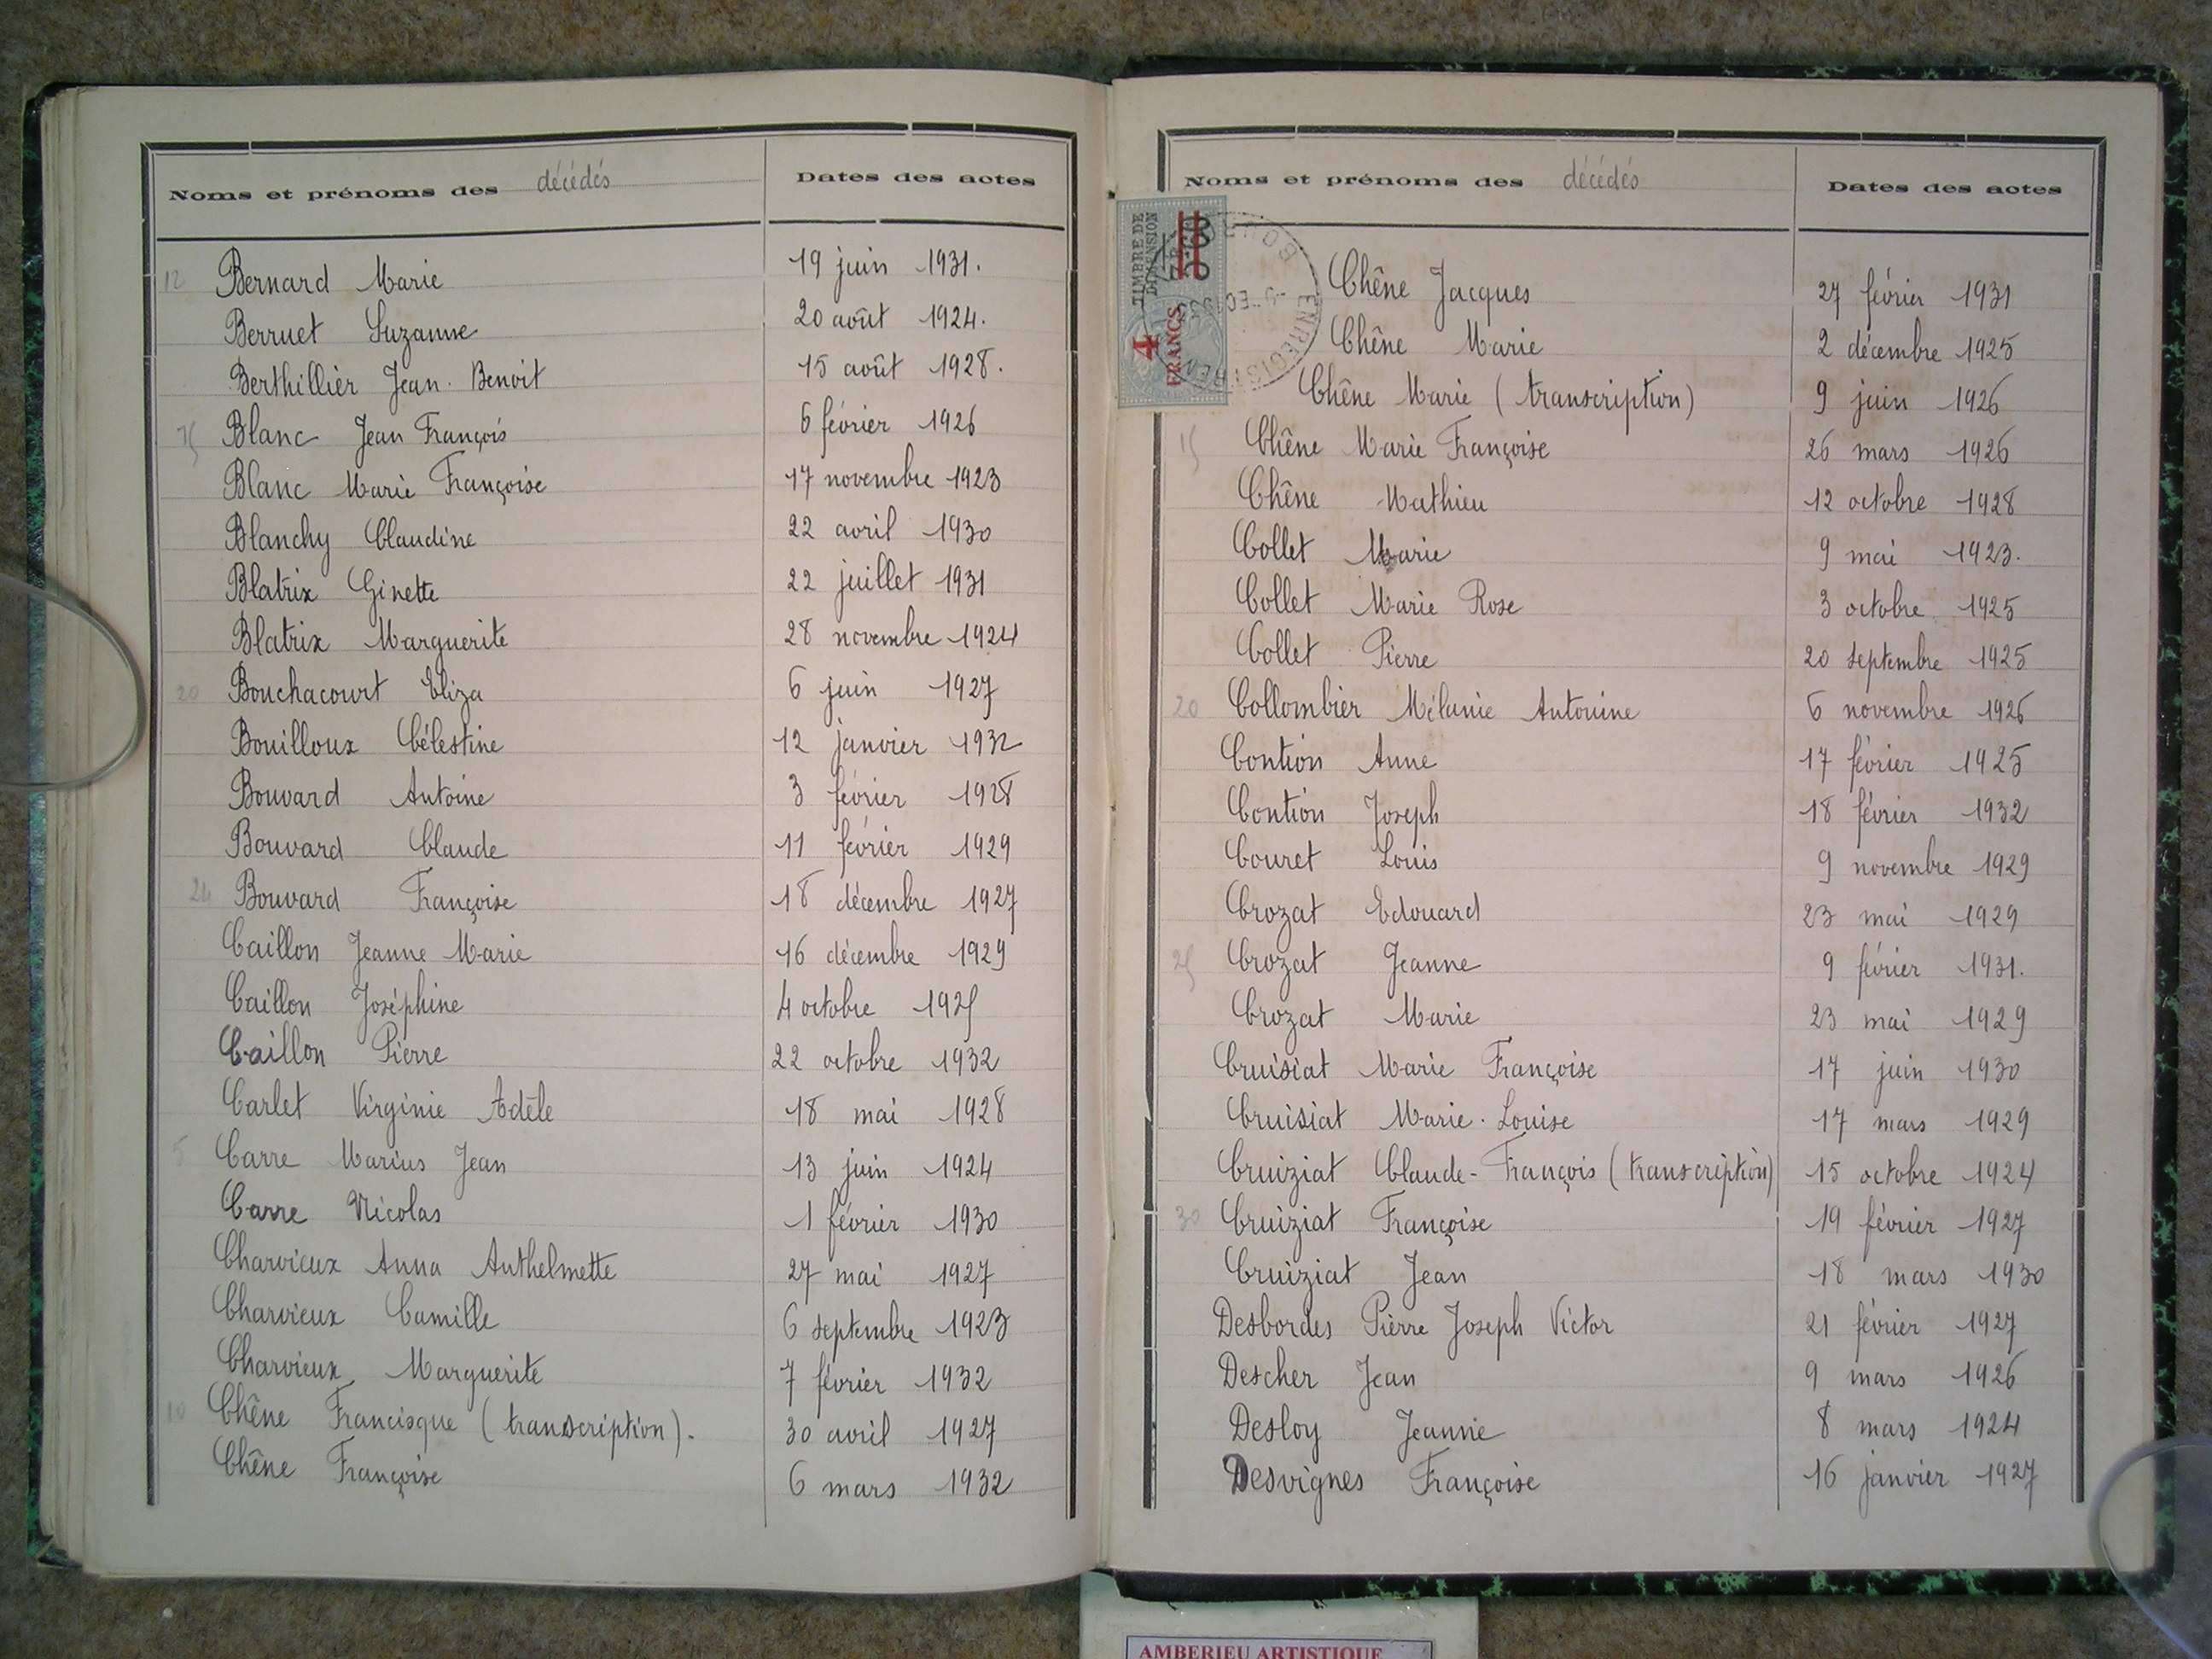 Noms et prénoms des décédés Dates des actes
12 Bernard Marie 19 juin 1931.
Berruet Suzanne 20 août 1924.
Berthillier Jean. Benoit 15 août 1928.
15 Blanc Jean François 6 février 1926
Blanc Marie Françoise 17 novembre 1923
Blanchy Claudine 22 avril 1930
Blatrix Ginette 22 juillet 1931
Blatrix Marguerite 28 novembre 1924
20 Bouchacourt Eliza 6 juin 1927
Bouilloux Célestine 12 janvier 1932
Bouvard Antoine 3 février 1928
Bouvard Claude 11 février 1929
24 Bouvard Françoise 18 décembre 1927
Caillon Jeanne Marie 16 décembre 1929
Caillon Joséphine 4 octobre 1925
Caillon Pierre 22 octobre 1932
Carlet Virginie Adèle 18 mai 1928
5 Carre Marius Jean 13 juin 1924
Carre Nicolas 1 février 1930
Charvieux Anna Anthelmette 27 mai 1927
Charvieux Camille 6 septembre 1923
Charvieux Marguerite 7 février 1932
10 Chêne Francisque (transcription). 30 avril 1927
Chêne Françoise 6 mars 1932
Noms et prénoms des décédés Dates des actes
TIMBRE DE
DIMENSION
4
FRANCS
ENREGISTREM
BOURG
Chêne Jacques 27 février 1931
Chêne Marie 2 décembre 1925
Chêne Marie (transcription) 9 juin 1926
15 Chêne Marie Françoise 26 mars 1926
Chêne Mathieu 12 octobre 1928
Collet Marie 9 mai 1923.
Collet Marie Rose 3 octobre 1925
Collet Pierre 20 septembre 1925
20 Collombier Mélanie Antonine 6 novembre 1926
Contion Anne 17 février 1925
Contion Joseph 18 février 1932
Couret Louis 9 novembre 1929
Crozat Edouard 23 mai 1929
25 Crozat Jeanne 9 février 1931.
Crozat Marie 23 mai 1929
Cruisiat Marie Françoise 17 juin 1930
Cruisiat Marie. Louise 17 mars 1929
Cruiziat Claude-François (transcription) 15 octobre 1924
30 Cruiziat Françoise 19 février 1927
Cruiziat Jean 18 mars 1930
Desbordes Pierre Joseph Victor 21 février 1927
Descher Jean 9 mars 1926
Desloy Jeanne 8 mars 1924
Desvignes Françoise 16 janvier 1927
AMBERIEU ARTISTIQUE